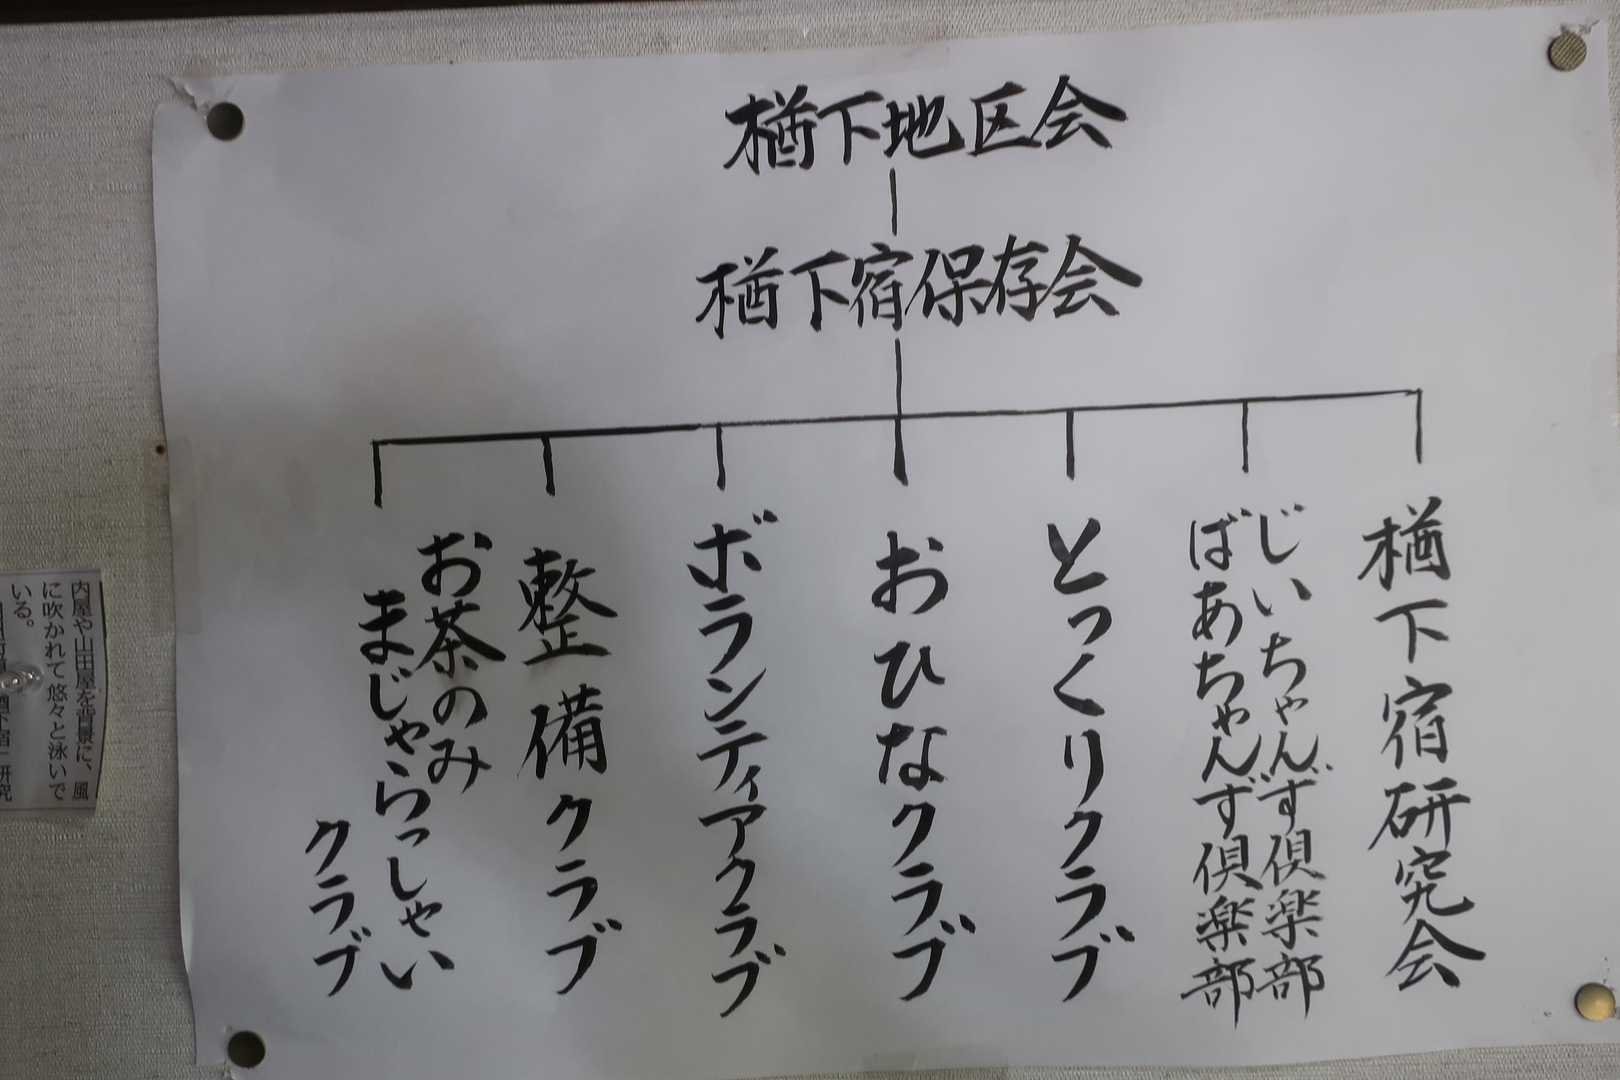 楢下地区会
楢下宿保存会
楢下宿研究会
じいちゃんず倶楽部
ばあちゃんず倶楽部
とっくりクラブ
おひなクラブ
ボランティアクラブ
整備クラブ
お茶のみ
まじゃらっしゃい
クラブ
内屋や山田屋を背景に、風
に吹かれて悠々と泳いで
いる。